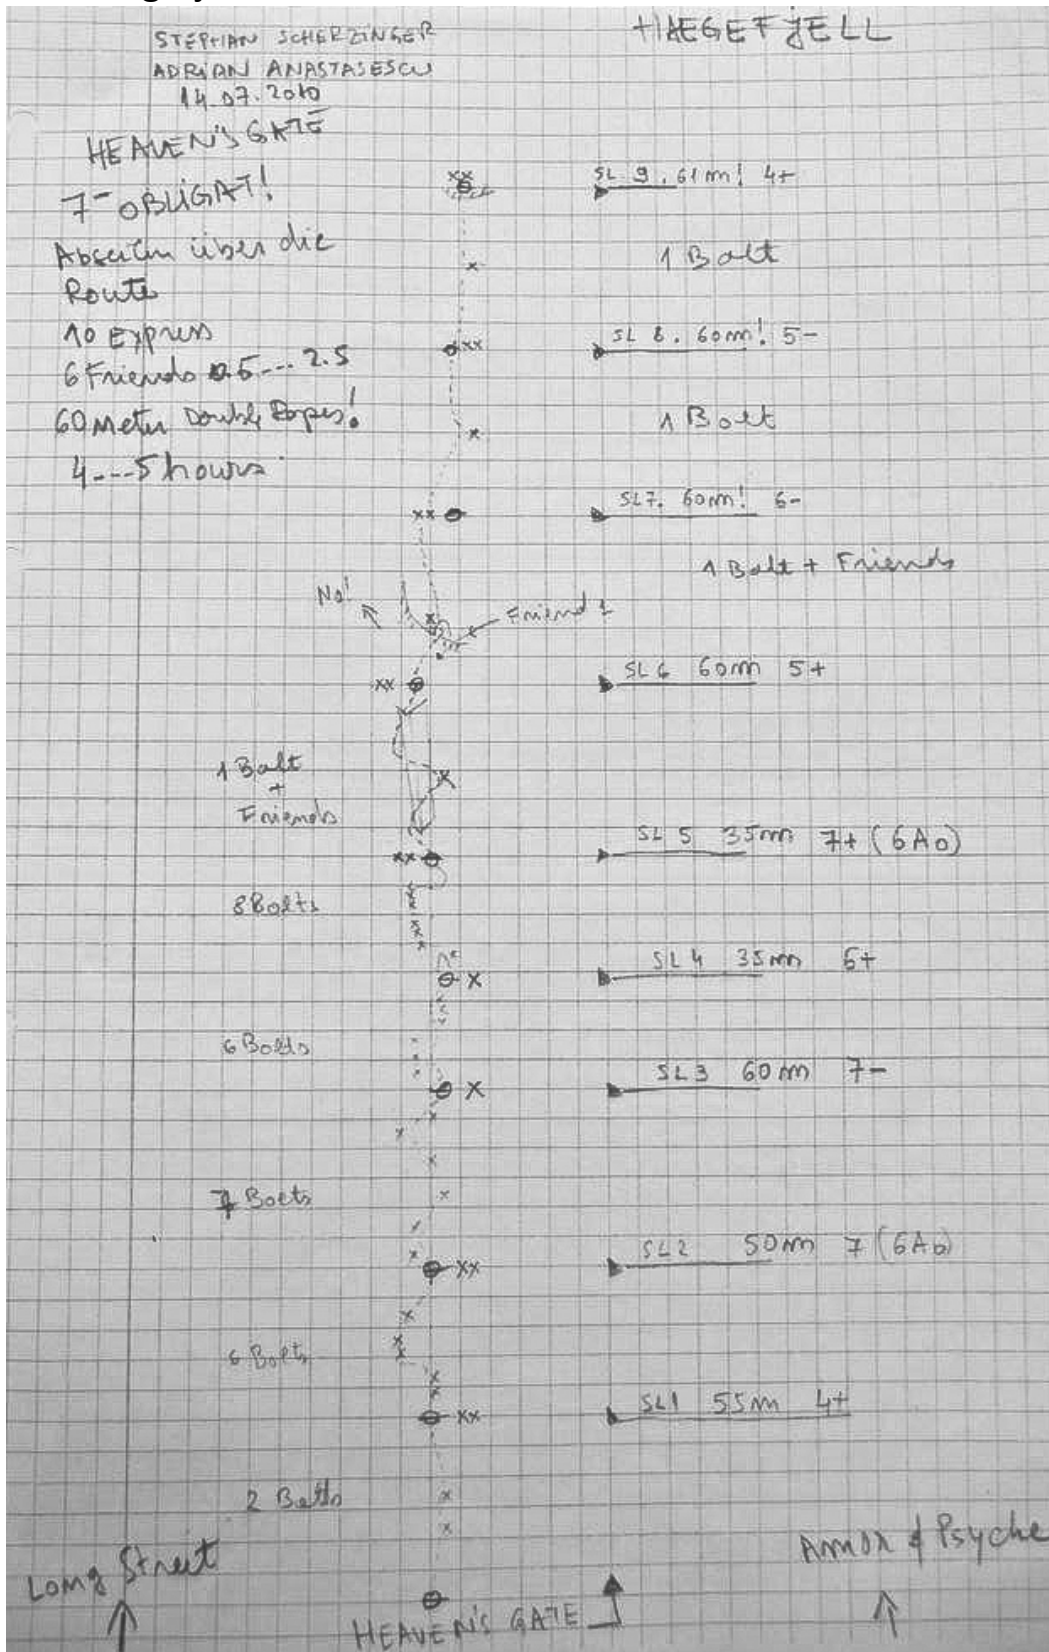 STEPHAN SCHERZINGER
ADRIAN ANASTASESCU
14.07.2010
HAEGEFJELL
HEAVEN'S GATE
7- OBLIGAT!
Abseilen über die
Route
10 Express
6 Friends 0.5---2.5
60 Meter Double Ropes!
4---5 hours
SL 9. 61m! 4+
1 Bolt
SL 8. 60m! 5-
1 Bolt
SL7. 60m! 6-
1 Bolt + Friends
No!
Friend 1
SL 6 60m 5+
1 Bolt
+
Friends
SL 5 35m 7+ (6A0)
8 Bolts
SL 4 35m 6+
6 Bolts
SL3 60m 7-
7 Bolts
SL2 50m 7 (6A0)
6 Bolts
SL1 55m 4+
2 Bolts
Long Street
Amor & Psyche
HEAVEN'S GATE